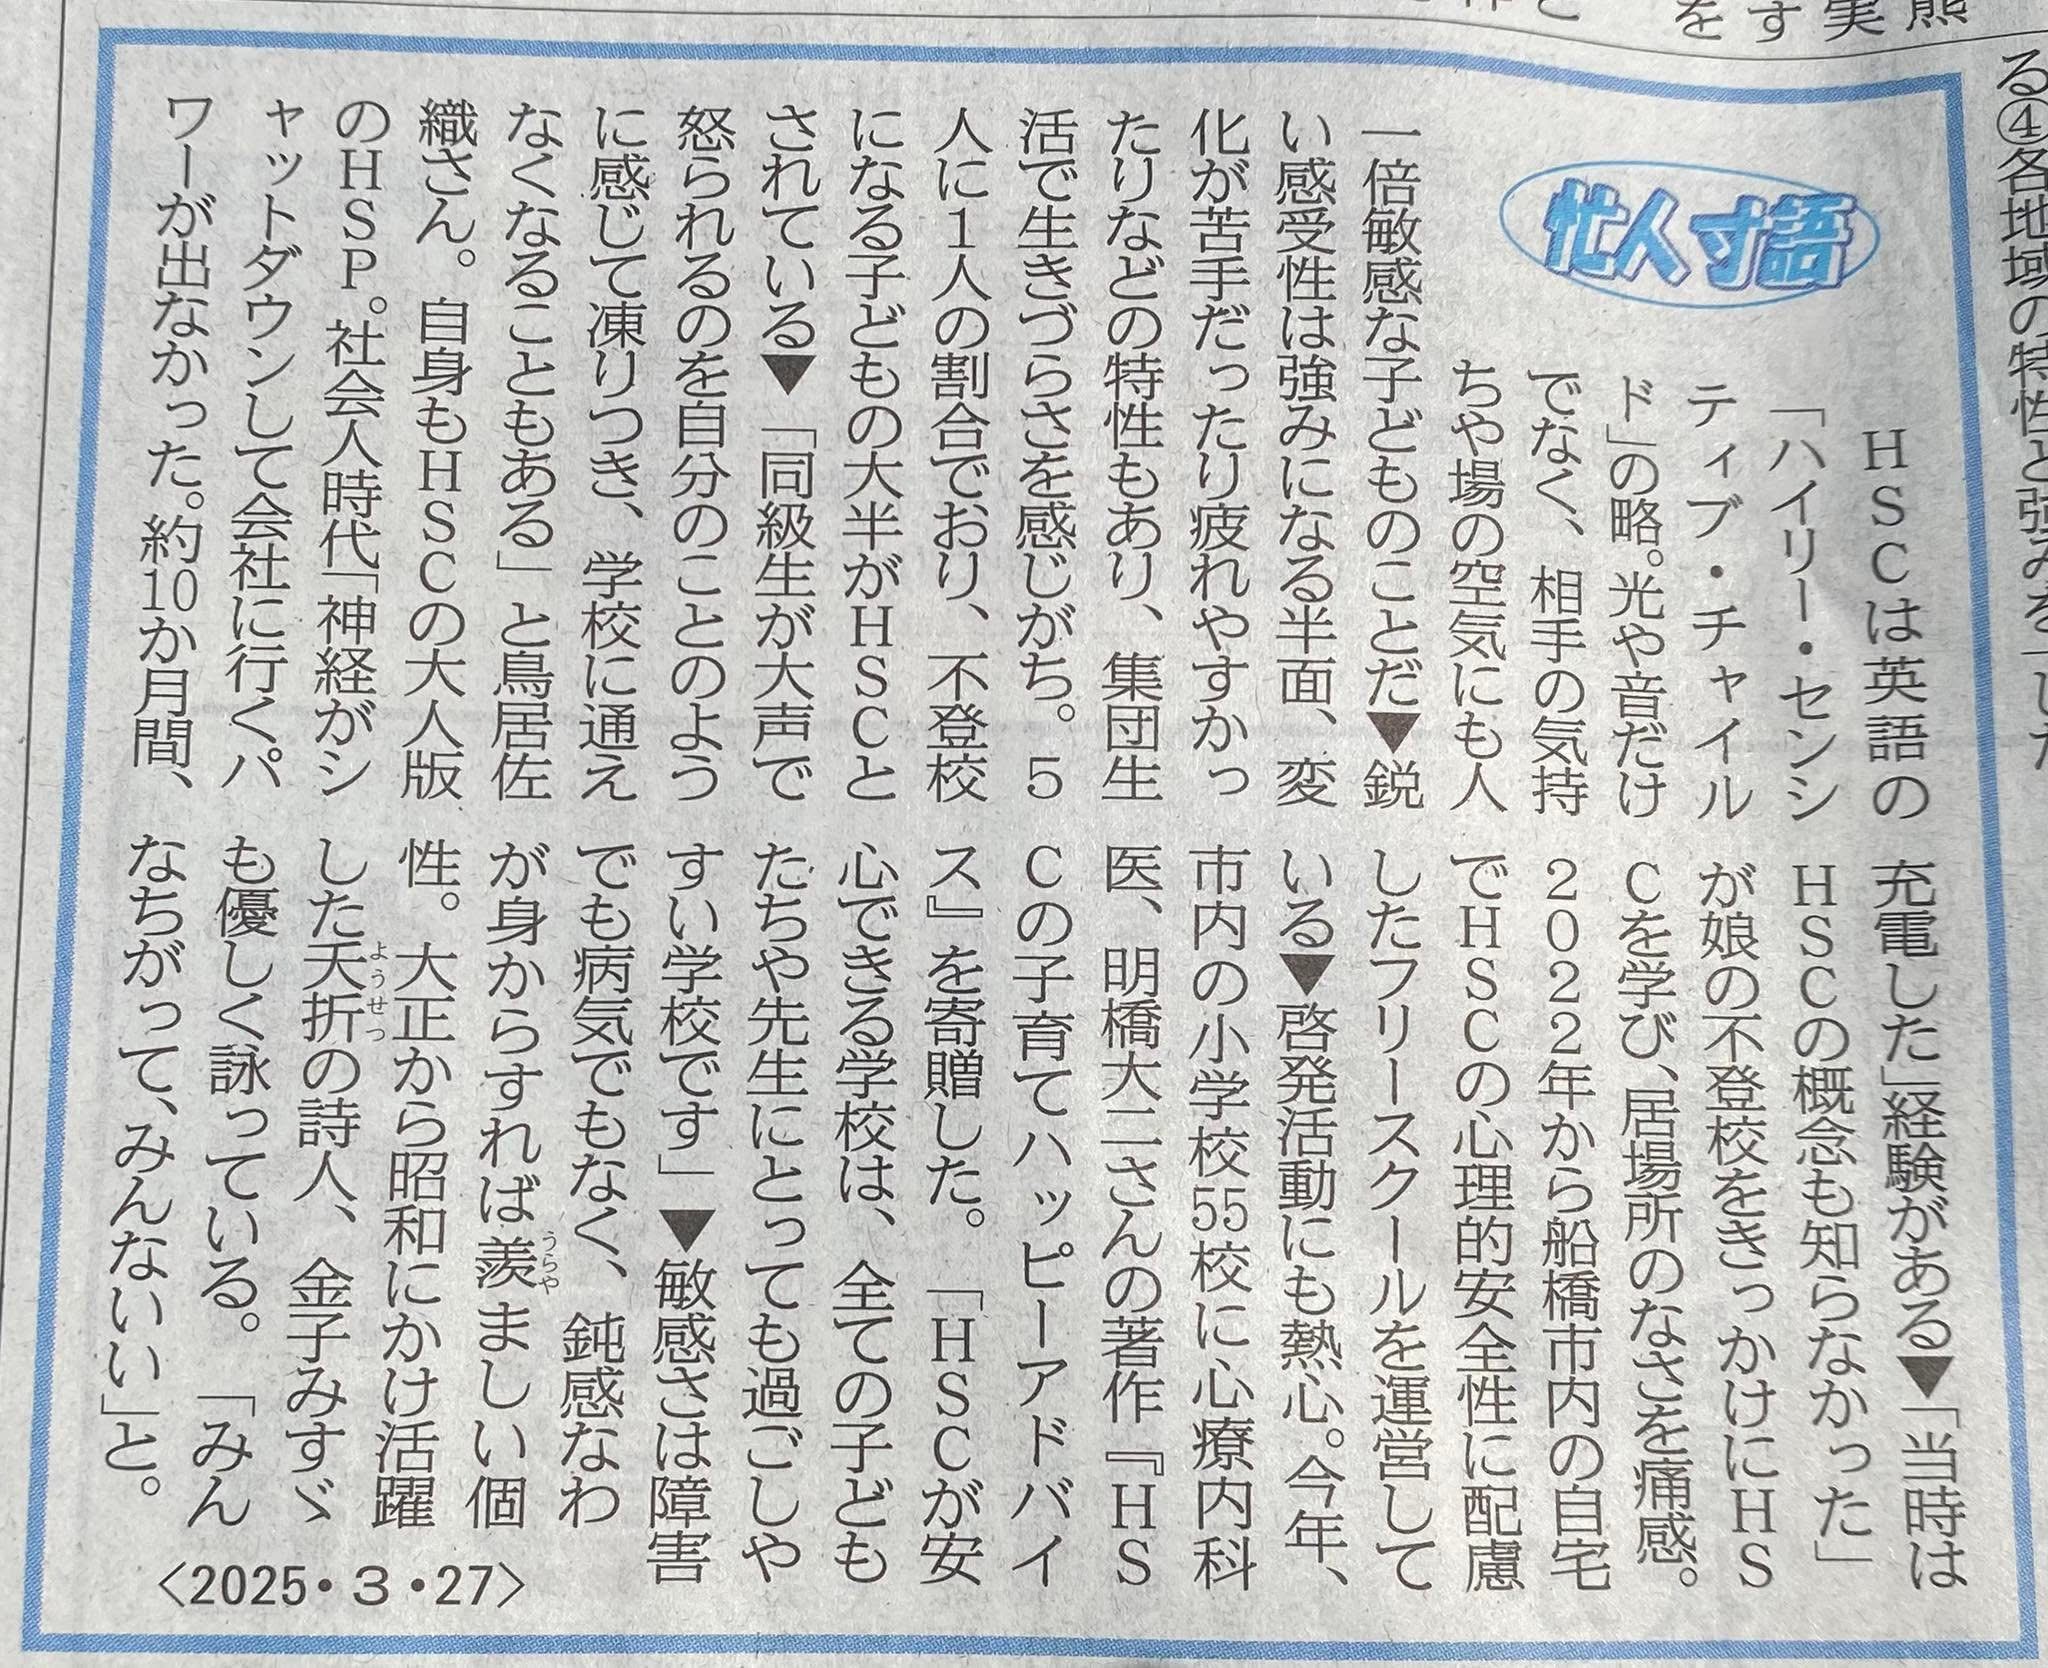 熊
実
す
を
る④各地域の特性と強みを
忙人寸語
HSCは英語の
「ハイリー・センシ
ティブ・チャイル
ド」の略。光や音だけ
でなく、相手の気持
ちや場の空気にも人
一倍敏感な子どものことだ▼鋭
い感受性は強みになる半面、変
化が苦手だったり疲れやすかっ
たりなどの特性もあり、集団生
活で生きづらさを感じがち。5
人に1人の割合でおり、不登校
になる子どもの大半がHSCと
されている▼「同級生が大声で
怒られるのを自分のことのよう
に感じて凍りつき、学校に通え
なくなることもある」と鳥居佐
織さん。自身もHSCの大人版
のHSP。社会人時代「神経がシ
ャットダウンして会社に行くパ
ワーが出なかった。約10か月間、
充電した」経験がある▼「当時は
HSCの概念も知らなかった」
が娘の不登校をきっかけにHS
Cを学び、居場所のなさを痛感。
2022年から船橋市内の自宅
でHSCの心理的安全性に配慮
したフリースクールを運営して
いる▼啓発活動にも熱心。今年、
市内の小学校55校に心療内科
医、明橋大二さんの著作『HS
Cの子育てハッピーアドバイ
ス』を寄贈した。「HSCが安
心できる学校は、全ての子ども
たちや先生にとっても過ごしや
すい学校です」▼敏感さは障害
でも病気でもなく、鈍感なわ
が身からすれば羨ましい個
うらや
性。大正から昭和にかけ活躍
した夭折の詩人、金子みすゞ
ようせつ
も優しく詠っている。「みん
なちがって、みんないい」と。
〈2025・3・27〉